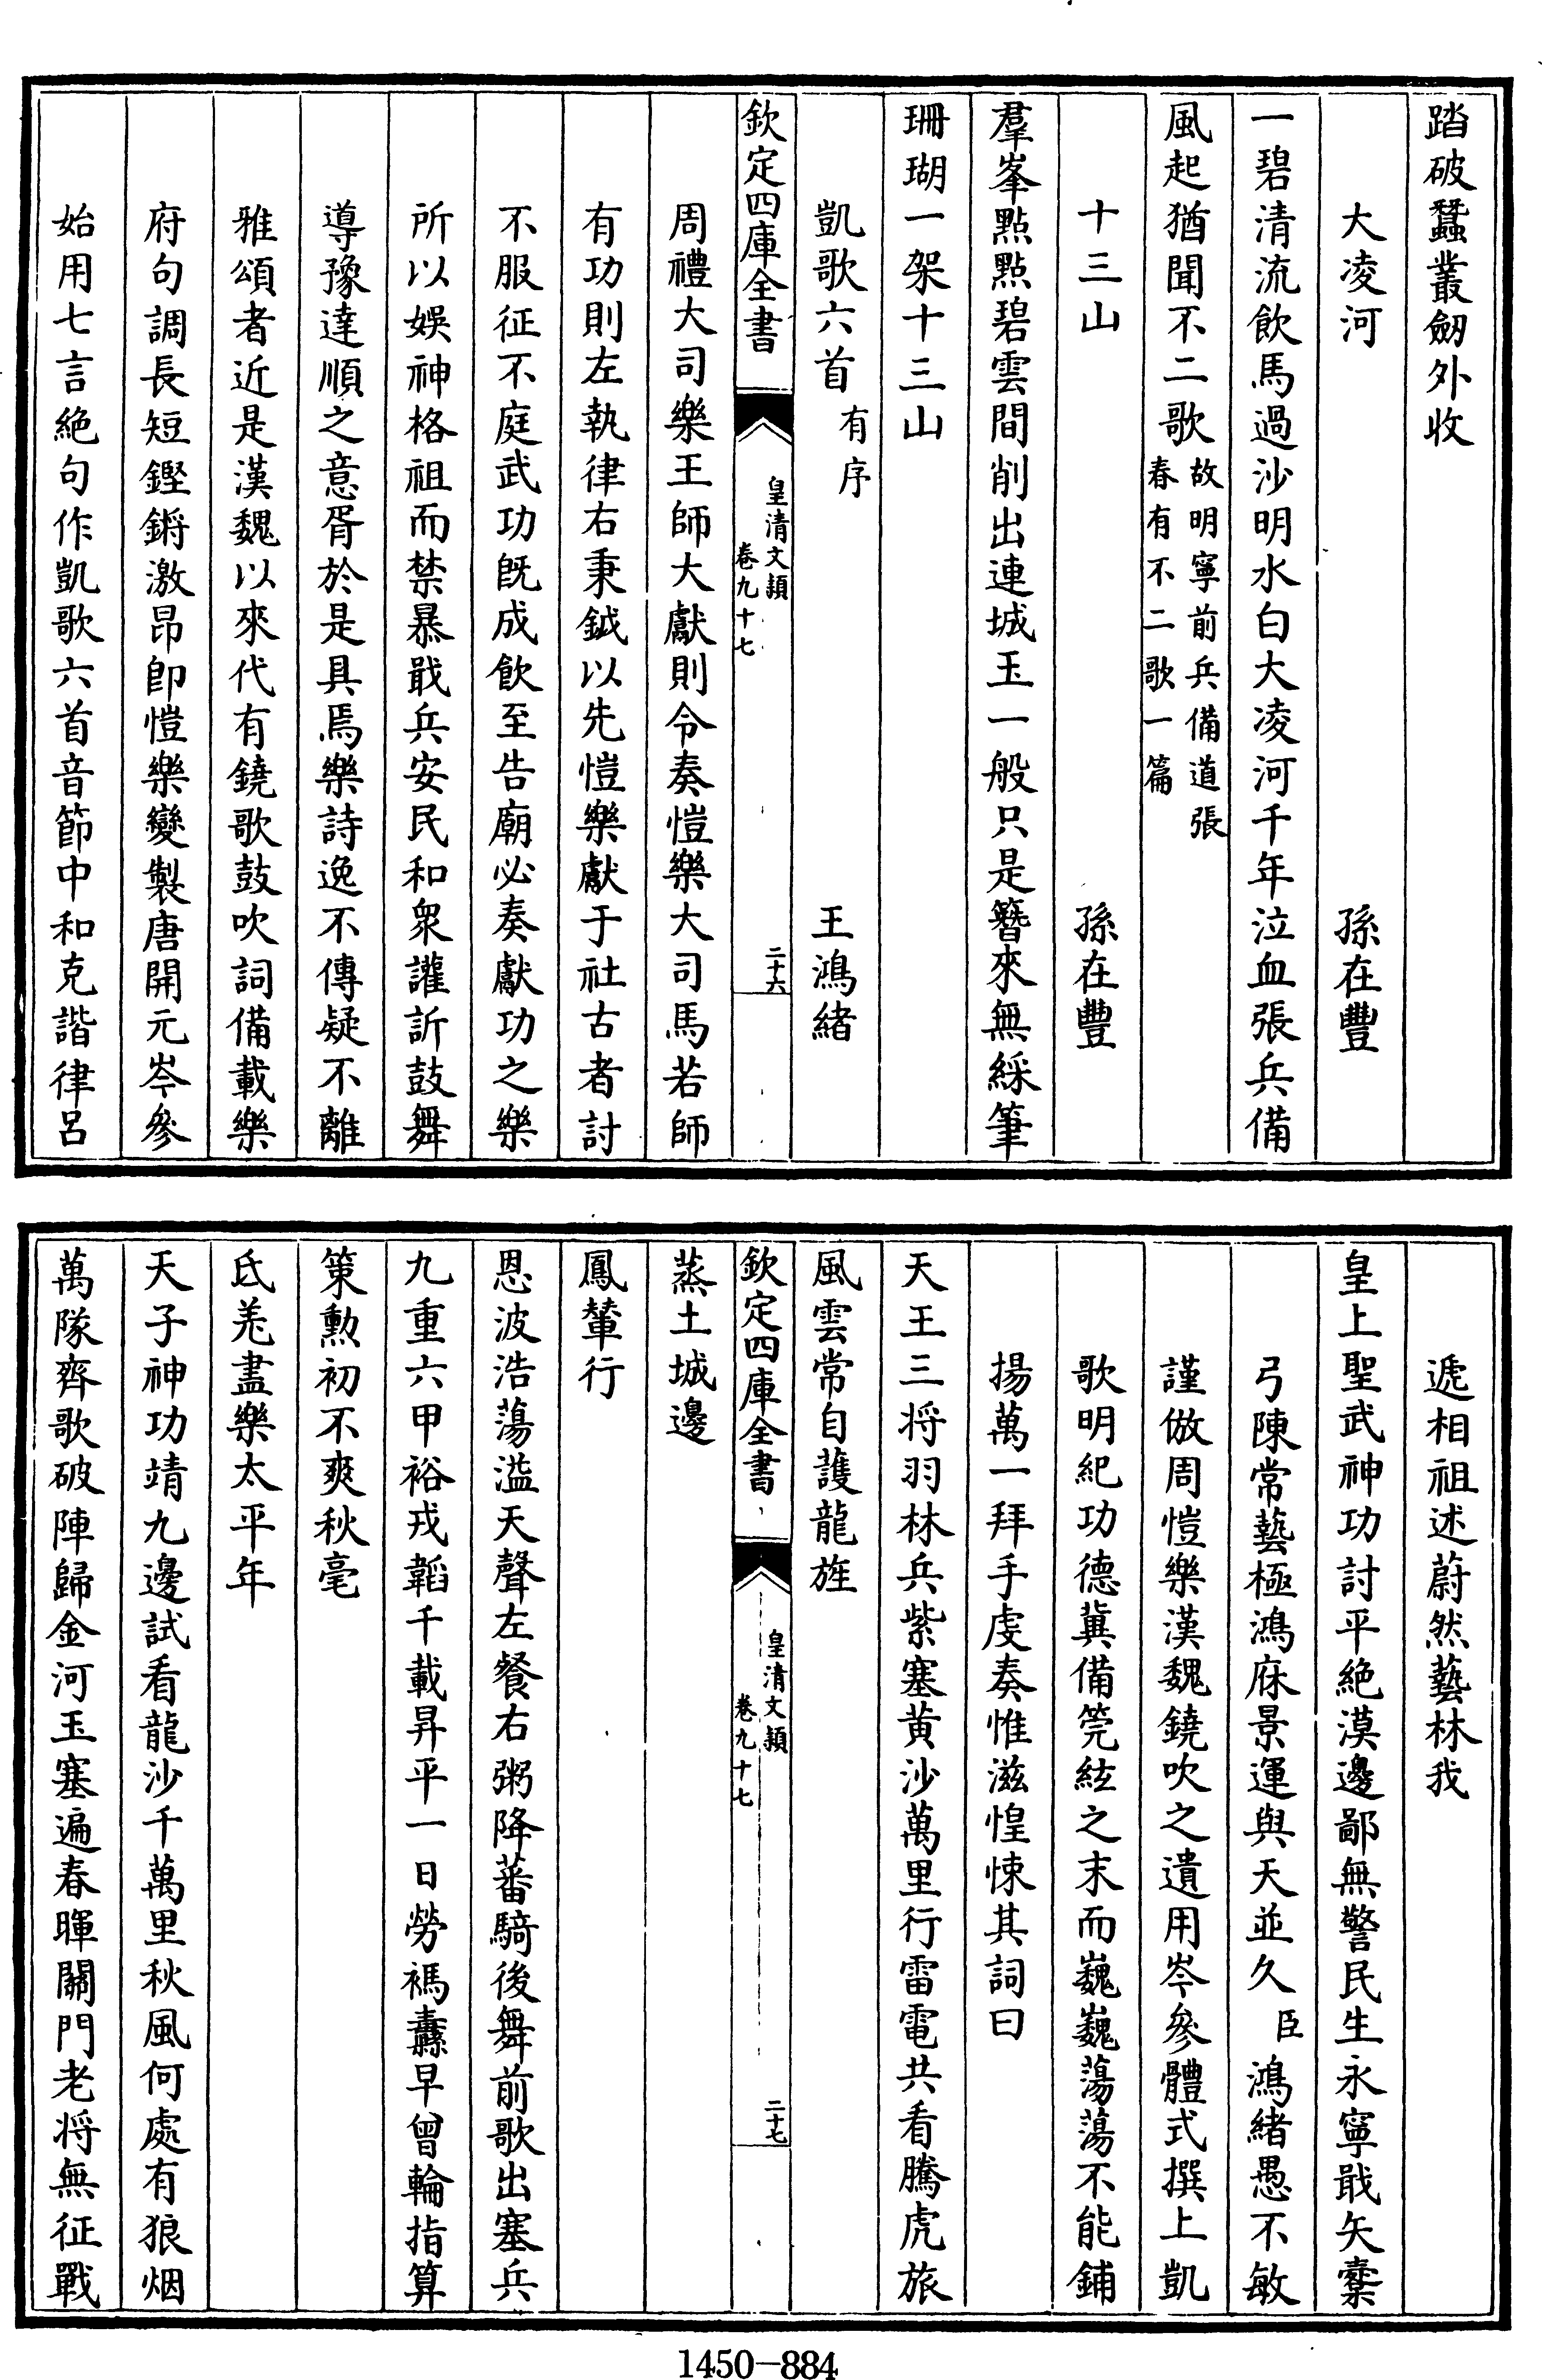 踏破蠶叢劒外收
大凌河　孫在豐
一碧清流飲馬過沙明水白大凌河千年泣血張兵備
風起猶聞不二歌故明寧前兵備道張
春有不二歌一篇
十三山　孫在豐
羣峯點點碧雲間削出連城玉一般只是簪來無綵筆
珊瑚一架十三山
凱歌六首有序　王鴻緒
欽定四庫全書
皇清文穎
卷九十七
二十六
周禮大司樂王師大獻則令奏愷樂大司馬若師
有功則左執律右秉鉞以先愷樂獻于社古者討
不服征不庭武功旣成飲至告廟必奏獻功之樂
所以娛神格祖而禁暴戢兵安民和衆讙訢鼓舞
導豫達順之意胥於是具焉樂詩逸不傳疑不離
雅頌者近是漢魏以來代有鐃歌鼓吹詞備載樂
府句調長短鏗鏘激昂卽愷樂變製唐開元岑參
始用七言絶句作凱歌六首音節中和克諧律呂
遞相祖述蔚然藝林我
皇上聖武神功討平絶漠邊鄙無警民生永寧戢矢櫜
弓陳常藝極鴻庥景運與天並久臣鴻緒愚不敏
謹倣周愷樂漢魏鐃吹之遺用岑參體式撰上凱
歌明紀功德冀備筦絃之末而巍巍蕩蕩不能鋪
揚萬一拜手虔奏惟滋惶悚其詞曰
天王三将羽林兵紫塞黄沙萬里行雷電共看騰虎旅
風雲常自護龍旌
欽定四庫全書
皇清文穎
卷九十七
二十七
蒸土城邊
鳳輦行
恩波浩蕩溢天聲左餐右粥降蕃騎後舞前歌出塞兵
九重六甲裕戎韜千載昇平一日勞禡纛早曾輪指算
策勲初不爽秋毫
氐羌盡樂太平年
天子神功靖九邊試看龍沙千萬里秋風何處有狼烟
萬隊齊歌破陣歸金河玉塞遍春暉關門老将無征戰
1450-884